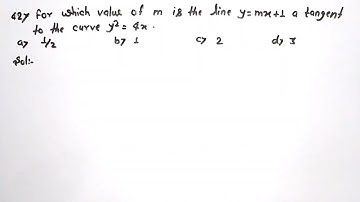 42> for which value of m is the line y=mx+1 a tangent
to the curve y² = 4x.
a> 1/2 b> 1 c> 2 d> 3
Sol:-